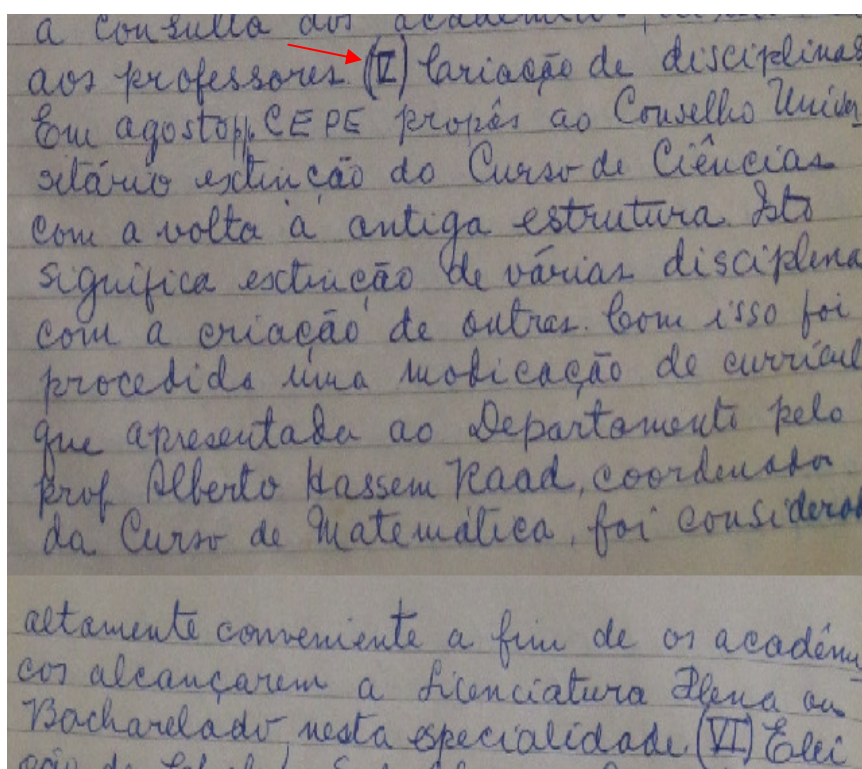 a consulta dos acadêmicos
aos professores. (V) Cariação de disciplinas
Em agosto pp. CEPE propôs ao Conselho Univer
sitário extinção do Curso de Ciências
com a volta à antiga estrutura. Isto
significa extinção de várias disciplina
com a criação de outras. Com isso foi
procedida uma modicação de curricul
que apresentada ao Departamento pelo
prof Alberto Hassem Raad, coordenador
da Curso de Matemática, foi considerad
altamente conveniente a fim de os acadêmi
cos alcançarem a Licenciatura Plena ou
Bacharelado nesta especialidade. (VI) Elei
ção de